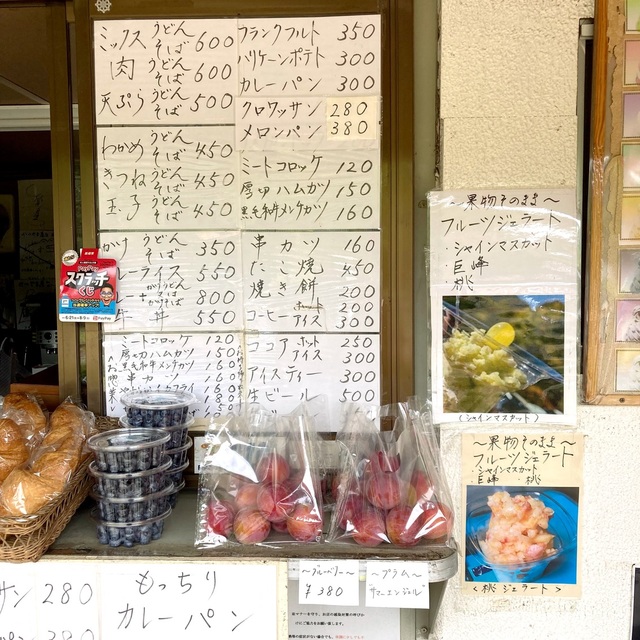 ミックス うどん そば 600
肉 うどん そば 600
天ぷら うどん そば 500
わかめ うどん そば 450
きつね うどん そば 450
玉子 うどん そば 450
かけ うどん そば 350
レーライス 550
800
牛丼 550
ミートコロッケ 120
厚切ハムカツ 150
黒毛和牛メンチカツ 160
串カツ 160
180
フランクフルト 350
ハリケーンポテト 300
カレーパン 300
クロワッサン 280
メロンパン 380
ミートコロッケ 120
厚切ハムカツ 150
黒毛和牛メンチカツ 160
串カツ 160
たこ焼 450
焼き餅 200
コーヒー ホット 200
アイス 300
ココア ホット 250
アイス 300
アイスティー 300
生ビール 500
PayPay
スクラッチ
くじ
PayPay
〜果物そのまま〜
フルーツジェラート
・シャインマスカット
・巨峰
・桃
(シャインマスカット)
〜果物そのまま〜
フルーツジェラート
・シャインマスカット
・巨峰 ・桃
<桃 ジェラート>
〜ブルーベリー〜
¥380
〜プラム〜
サマーエンジェル
サン 280
380
もっちり
カレーパン